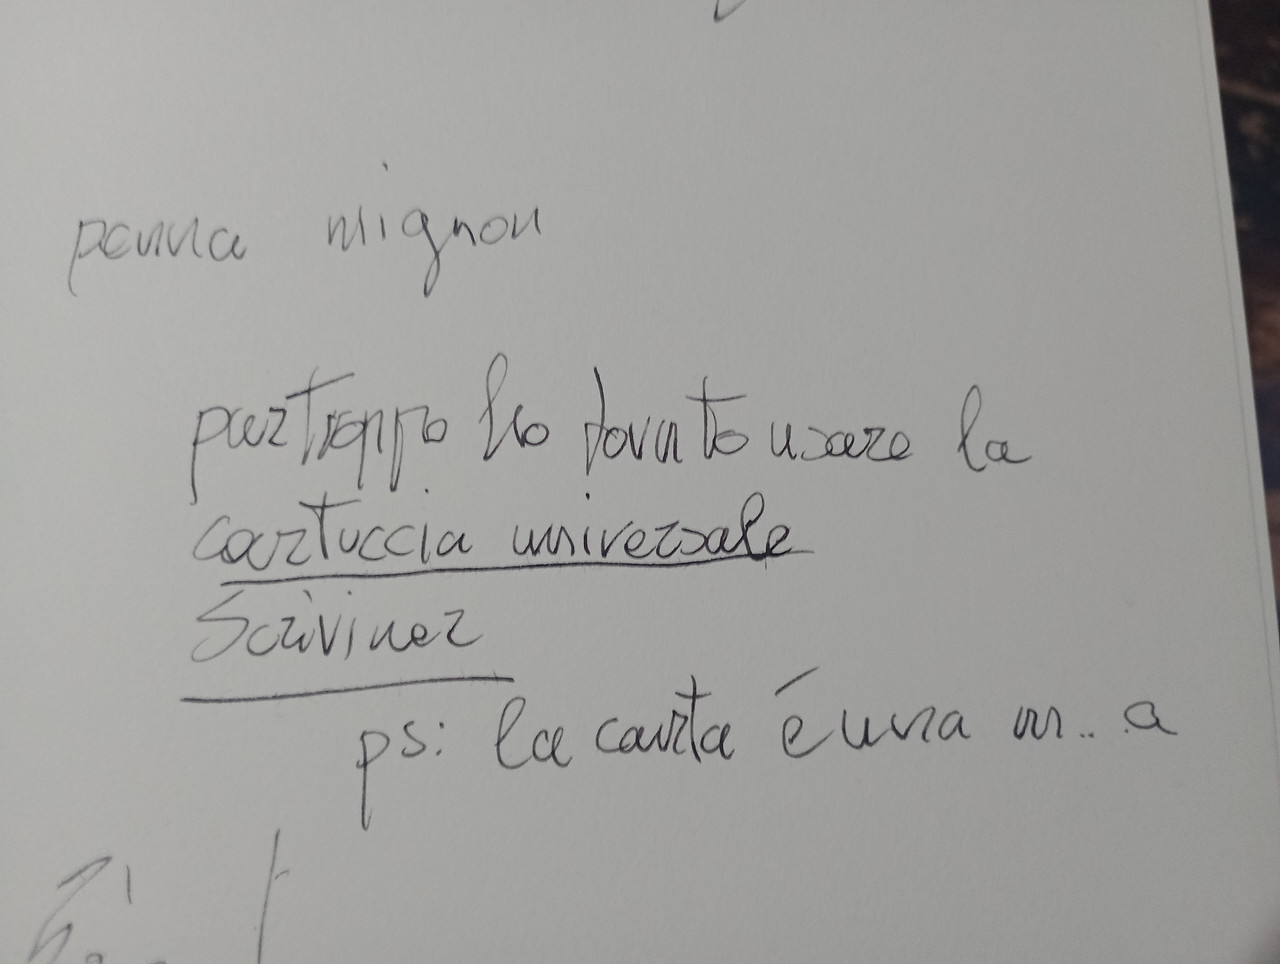 penna mignon
purtroppo ho dovuto usare la
cartuccia universale
Scriviner
ps: la carta è una m... a